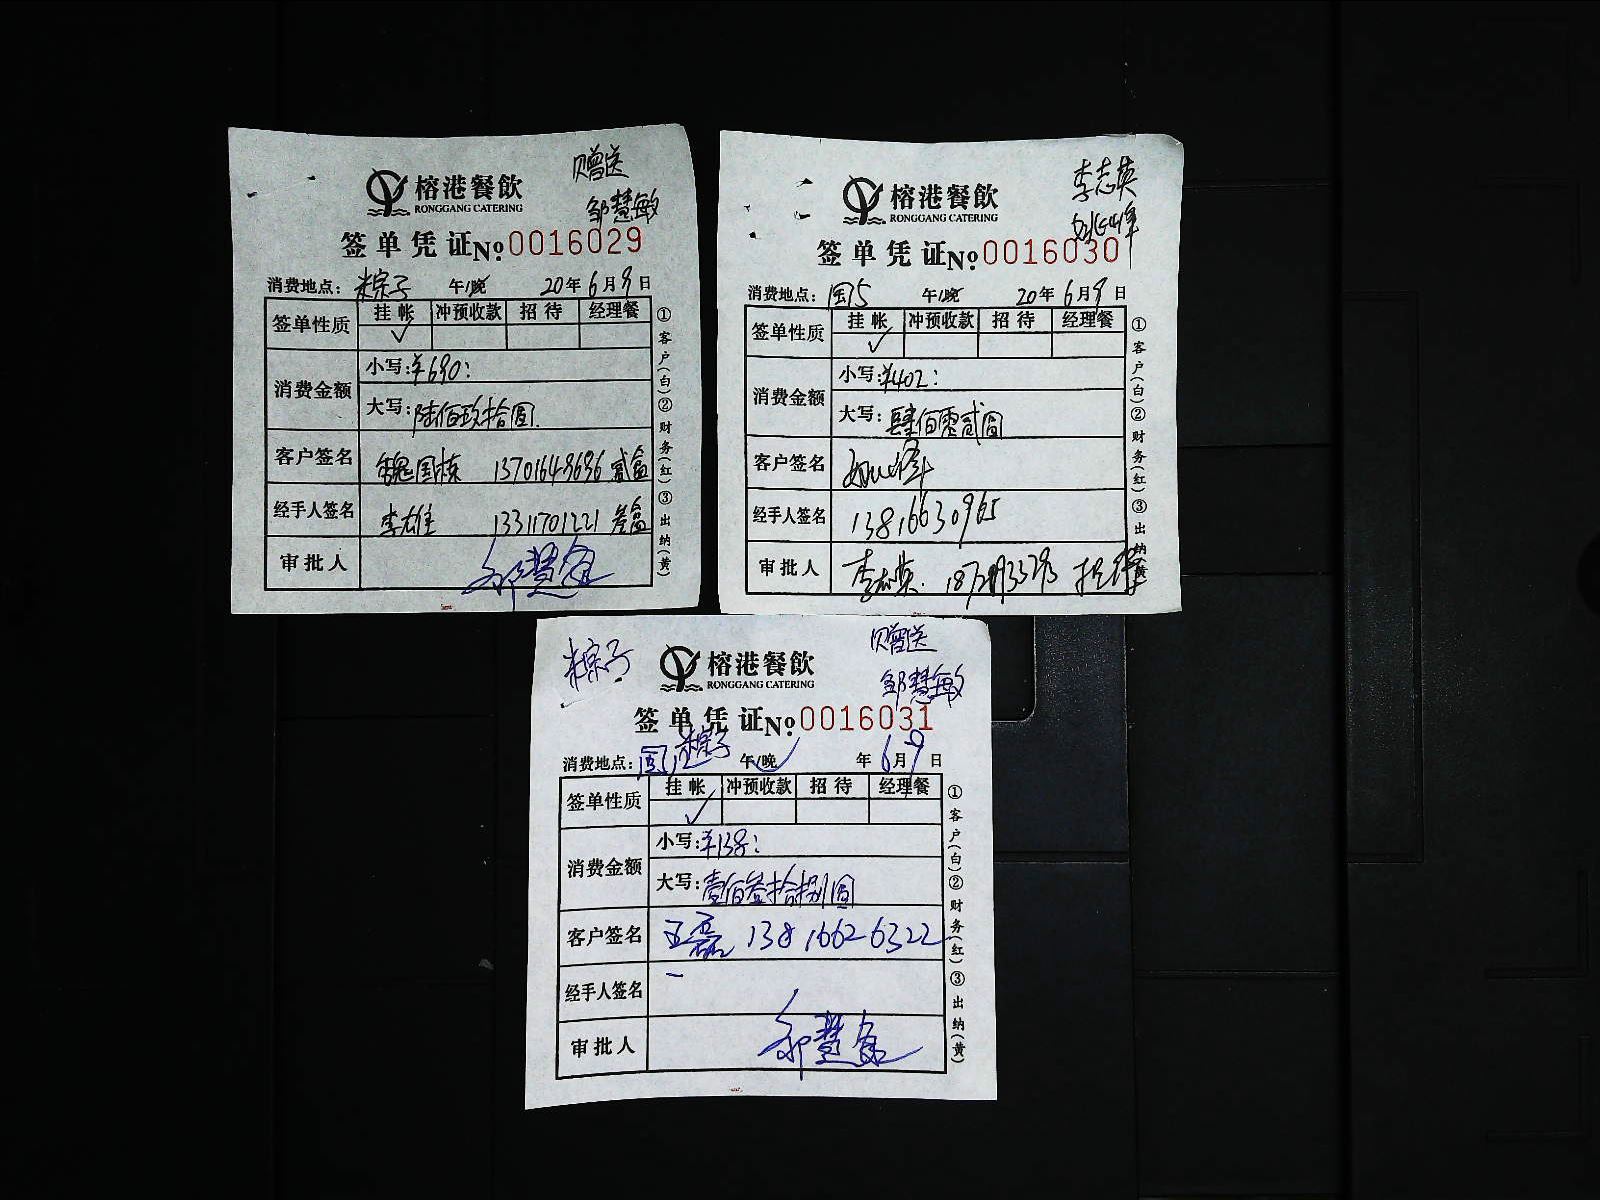 赠送
邹慧敏
榕港餐飲
RONGGANG CATERING
签单凭证 №0016029
消费地点：粽子 午/晚 20年6月9日
签单性质 挂帐 冲预收款 招待 经理餐
✓
消费金额 小写：¥690：
大写：陆佰玖拾圆
客户签名 魏国栋 13701648696 贰盒
经手人签名 李雄 13311701221 叁盒
审批人 邹慧敏
①客户(白)②财务(红)③出纳(黄)
李志英
榕港餐飲
RONGGANG CATERING
签单凭证 №0016030
消费地点：国15 午/晚 20年6月9日
签单性质 挂帐 冲预收款 招待 经理餐
✓
消费金额 小写：¥402：
大写：肆佰零贰圆
客户签名
经手人签名 13816630965
审批人 李志英
①客户(白)②财务(红)③出纳(黄)
粽子
赠送
邹慧敏
榕港餐飲
RONGGANG CATERING
签单凭证 №0016031
消费地点：粽子 午/晚 年6月9日
签单性质 挂帐 冲预收款 招待 经理餐
✓
消费金额 小写：¥138：
大写：壹佰叁拾捌圆
客户签名 王磊 13816626322
经手人签名
审批人 邹慧敏
①客户(白)②财务(红)③出纳(黄)